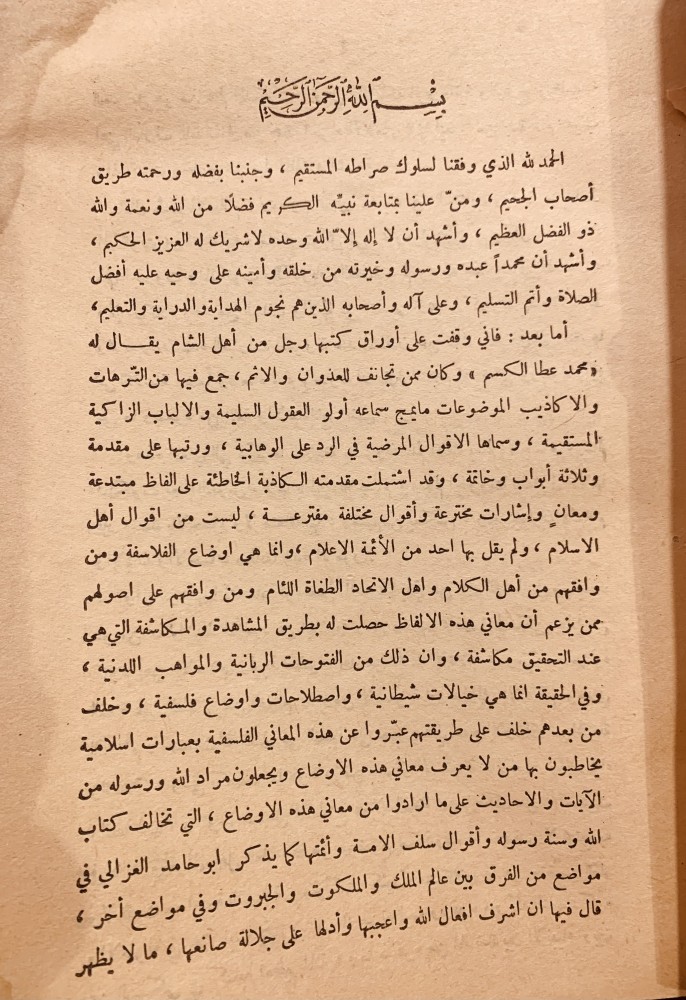 بِسْمِ ٱللَّهِ ٱلرَّحْمَنِ ٱلرَّحِيمِ
الحمد لله الذي وفقنا لسلوك صراطه المستقيم ، وجنبنا بفضله ورحمته طريق
أصحاب الجحيم ، ومنّ علينا بمتابعة نبيّه الكريم فضلًا من الله ونعمة والله
ذو الفضل العظيم ، وأشهد أن لا إله إلا ّالله وحده لاشريك له العزيز الحكيم ،
وأشهد أن محمداً عبده ورسوله وخيرته من خلقه وأمينه على وحيه عليه أفضل
الصلاة وأتم التسليم ، وعلى آله وأصحابه الذين هم نجوم الهداية والدراية والتعليم،
أما بعد : فاني وقفت على أوراق كتبها رجل من أهل الشام يقــال له
«محمد عطا الكسم » وكان ممن تجانف للعذوان والاثم ، جمع فيها من التّرهات
والاكاذيب الموضوعات مايمج سماعه أولو العقول السليمة والالباب الزاكية
المستقيمة ، وسماها الاقوال المرضية في الرد على الوهابية ، ورتبها على مقدمة
وثلاثة أبواب وخاتمة ، وقد اشتملت مقدمته الكاذبة الخاطئة على الفاظ مبتدعة
ومعانٍ وإشارات مخترعة وأقوال مختلفة مفترعــة ، ليست من اقوال أهل
الاسلام ، ولم يقل بها احد من الأئمة الاعلام ،وانما هي اوضاع الفلاسفة ومن
وافقهم من أهل الكلام واهل الاتحاد الطغاة اللئام ومن وافقهم على اصولهم
ممن يزعم أن معاني هذه الالفاظ حصلت له بطريق المشاهدة والمكاشفة التي هي
عند التحقيق مكاشفة ، وان ذلك من الفتوحات الربانية والمواهب اللدنية ،
وفي الحقيقة انما هي خيالات شيطانية ، واصطلاحات واوضاع فلسفية ، وخلف
من بعدهم خلف على طريقتهم عبّروا عن هذه المعاني الفلسفية بعبارات اسلامية
يخاطبون بها من لا يعرف معاني هذه الاوضاع ويجعلون مراد الله ورسوله من
الآيات والاحاديث على ما ارادوا من معاني هذه الاوضاع ، التي تخالف كتاب
الله وسنة رسوله وأقوال سلف الامـة وأئمتها كما يذكر ابو حامد الغزالي في
مواضع من الفرق بين عالم الملك والملكوت والجبروت وفي مواضع أخر ،
قال فيها ان اشرف افعال الله واعجبها وأدلها على جلالة صانعها ، ما لا يظهر